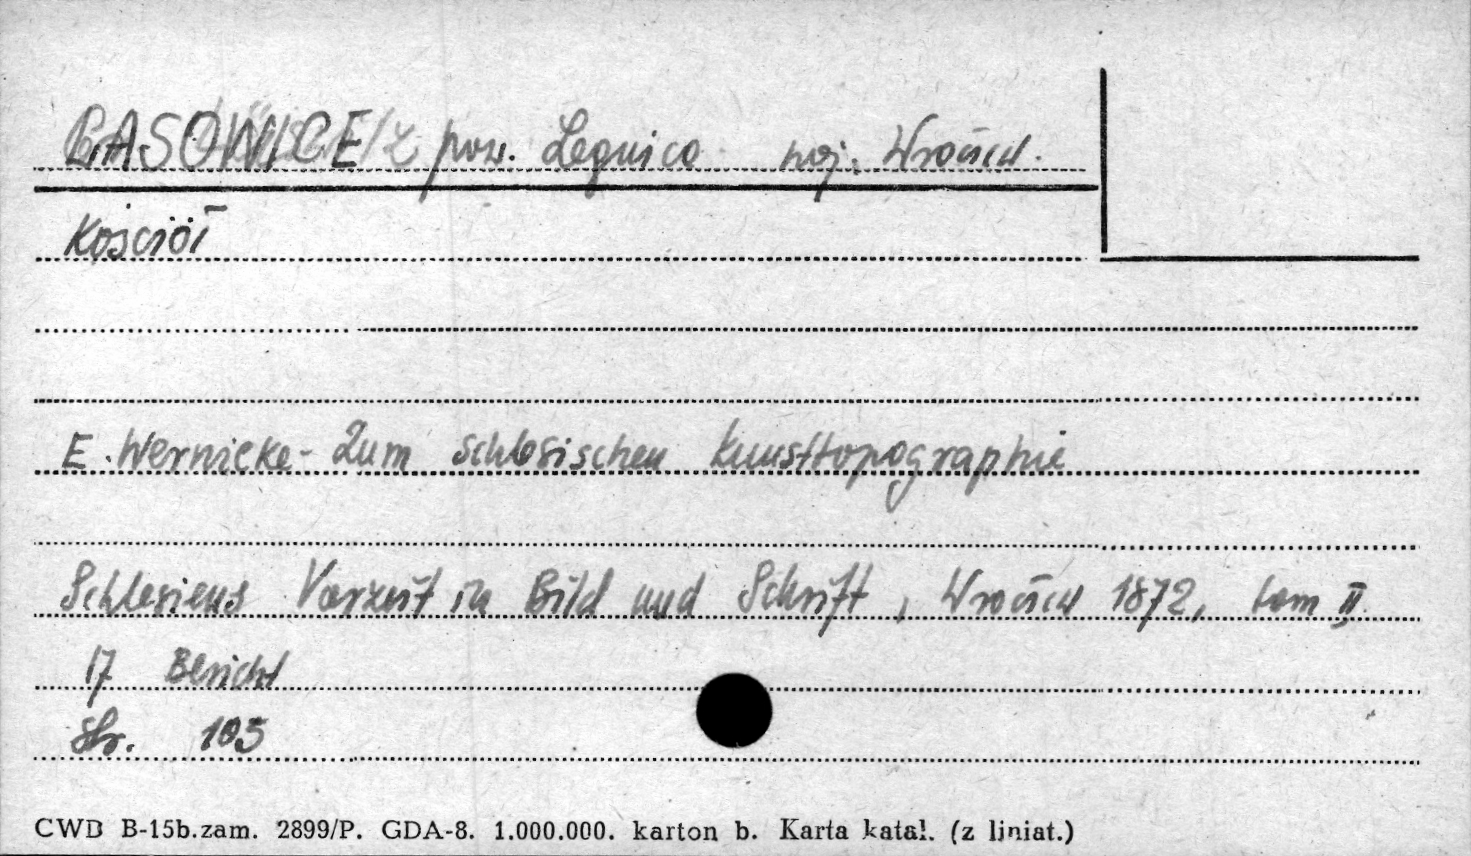 LASOWICE pow. Legnica woj. Wrocław.
Kościół
E. Wernicke - Zum schlesischen Kunsttopographie
Schlesiens Vorzeit in Bild und Schrift, Wrocław 1872, tom II.
17 Bericht
Str. 105
CWD B-15b.zam. 2899/P. GDA-8. 1.000.000. karton b. Karta katal. (z liniat.)